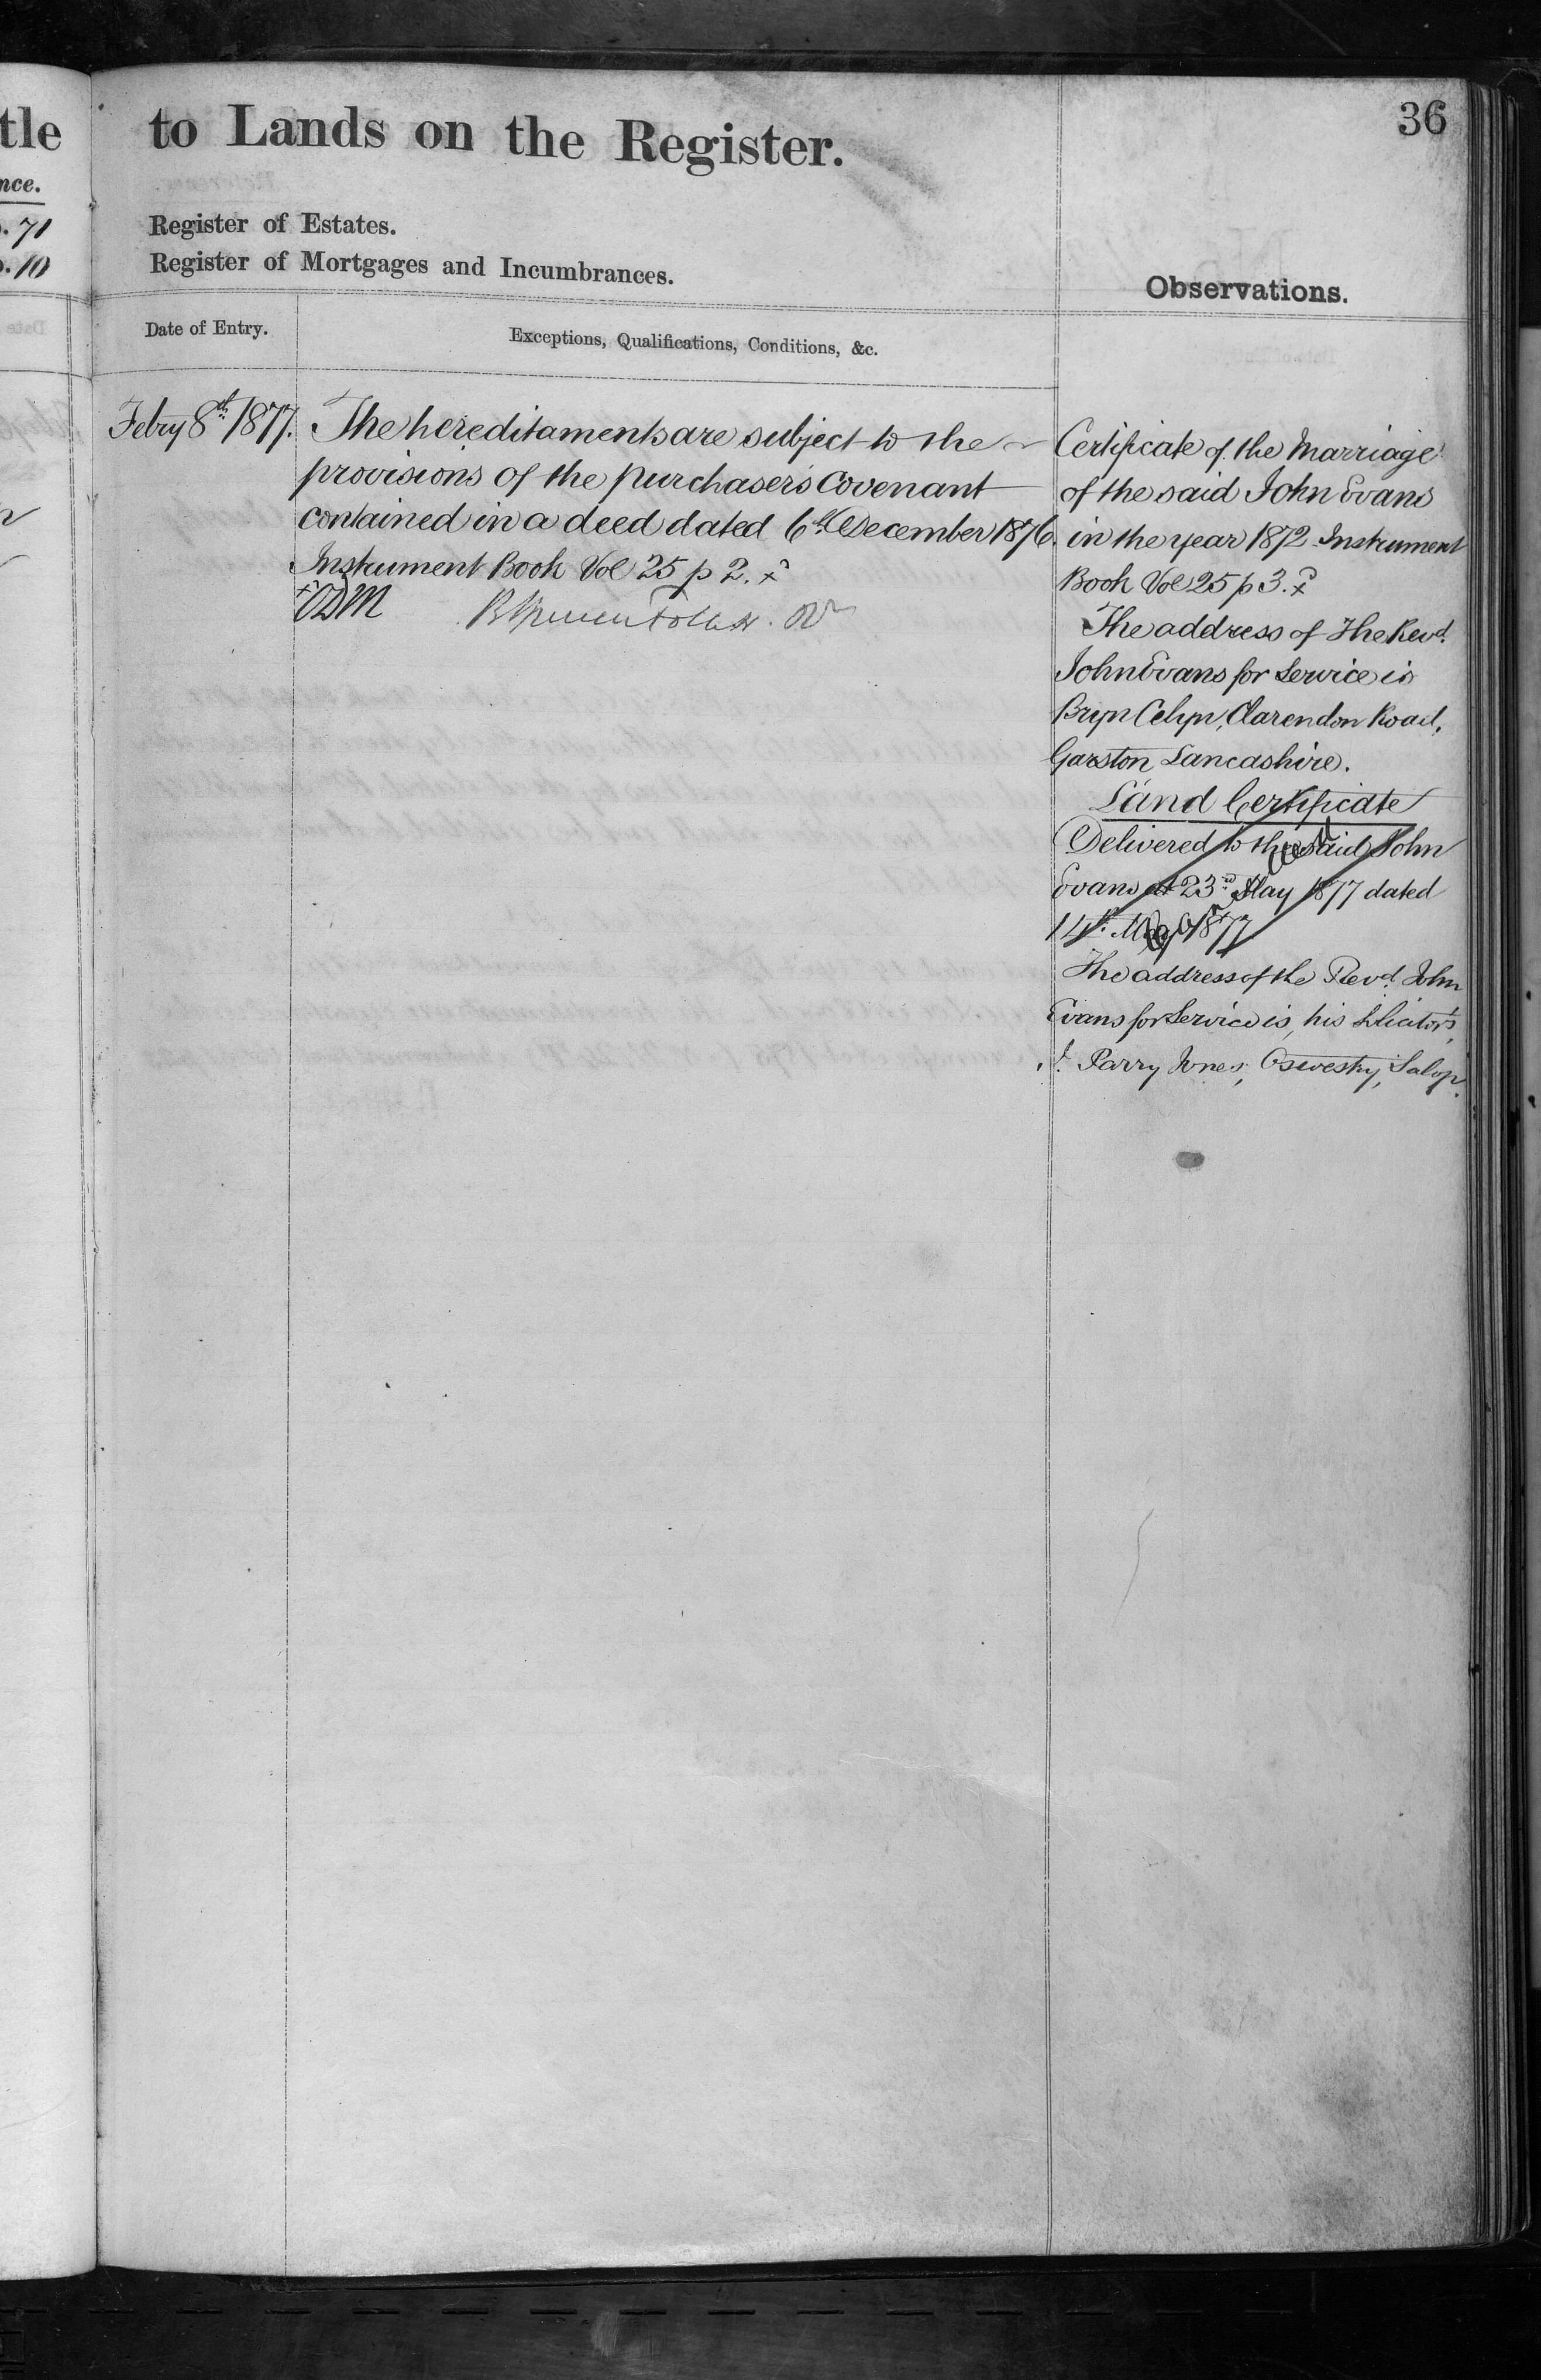 tle
nce.
. 71
. 10
to Lands on the Register.
36
Register of Estates.
Register of Mortgages and Incumbrances.
Observations.
Date of Entry.
Exceptions, Qualifications, Conditions, &c.
Febry 8th 1877.
The hereditaments are subject to the
provisions of the purchasers covenant
contained in a deed dated 6th December 1876.
Instrument Book Vol 25 p 2. x
Certificate of the Marriage
of the said John Evans
in the year 1872 Instrument
Book Vol 25 p 3. x
The address of The Revd.
John Evans for Service is
Bryn Celyn, Clarendon Road,
Garston Lancashire.
Land Certificate
Delivered to the said John
Evans 23rd May 1877 dated
14th May 1877
The address of the Revd. John
Evans for Service is, his Solicitor's,
J. Parry Jones, Oswestry, Salop.